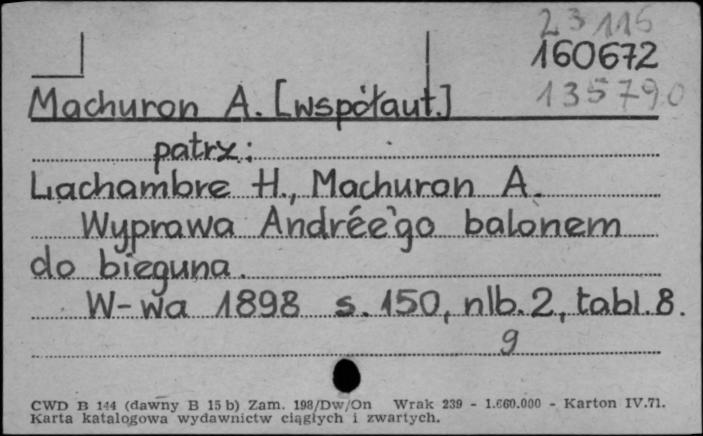 23115
160672
135790
Machuron A. [współaut.]
patrz:
Lachambre H., Machuron A.
Wyprawa Andrée'go balonem
do bieguna.
W-wa 1898 s. 150, nlb. 2, tabl. 8.
9
CWD B 144 (dawny B 15 b) Zam. 198/Dw/On Wrak 239 - 1.660.000 - Karton IV.71.
Karta katalogowa wydawnictw ciągłych i zwartych.